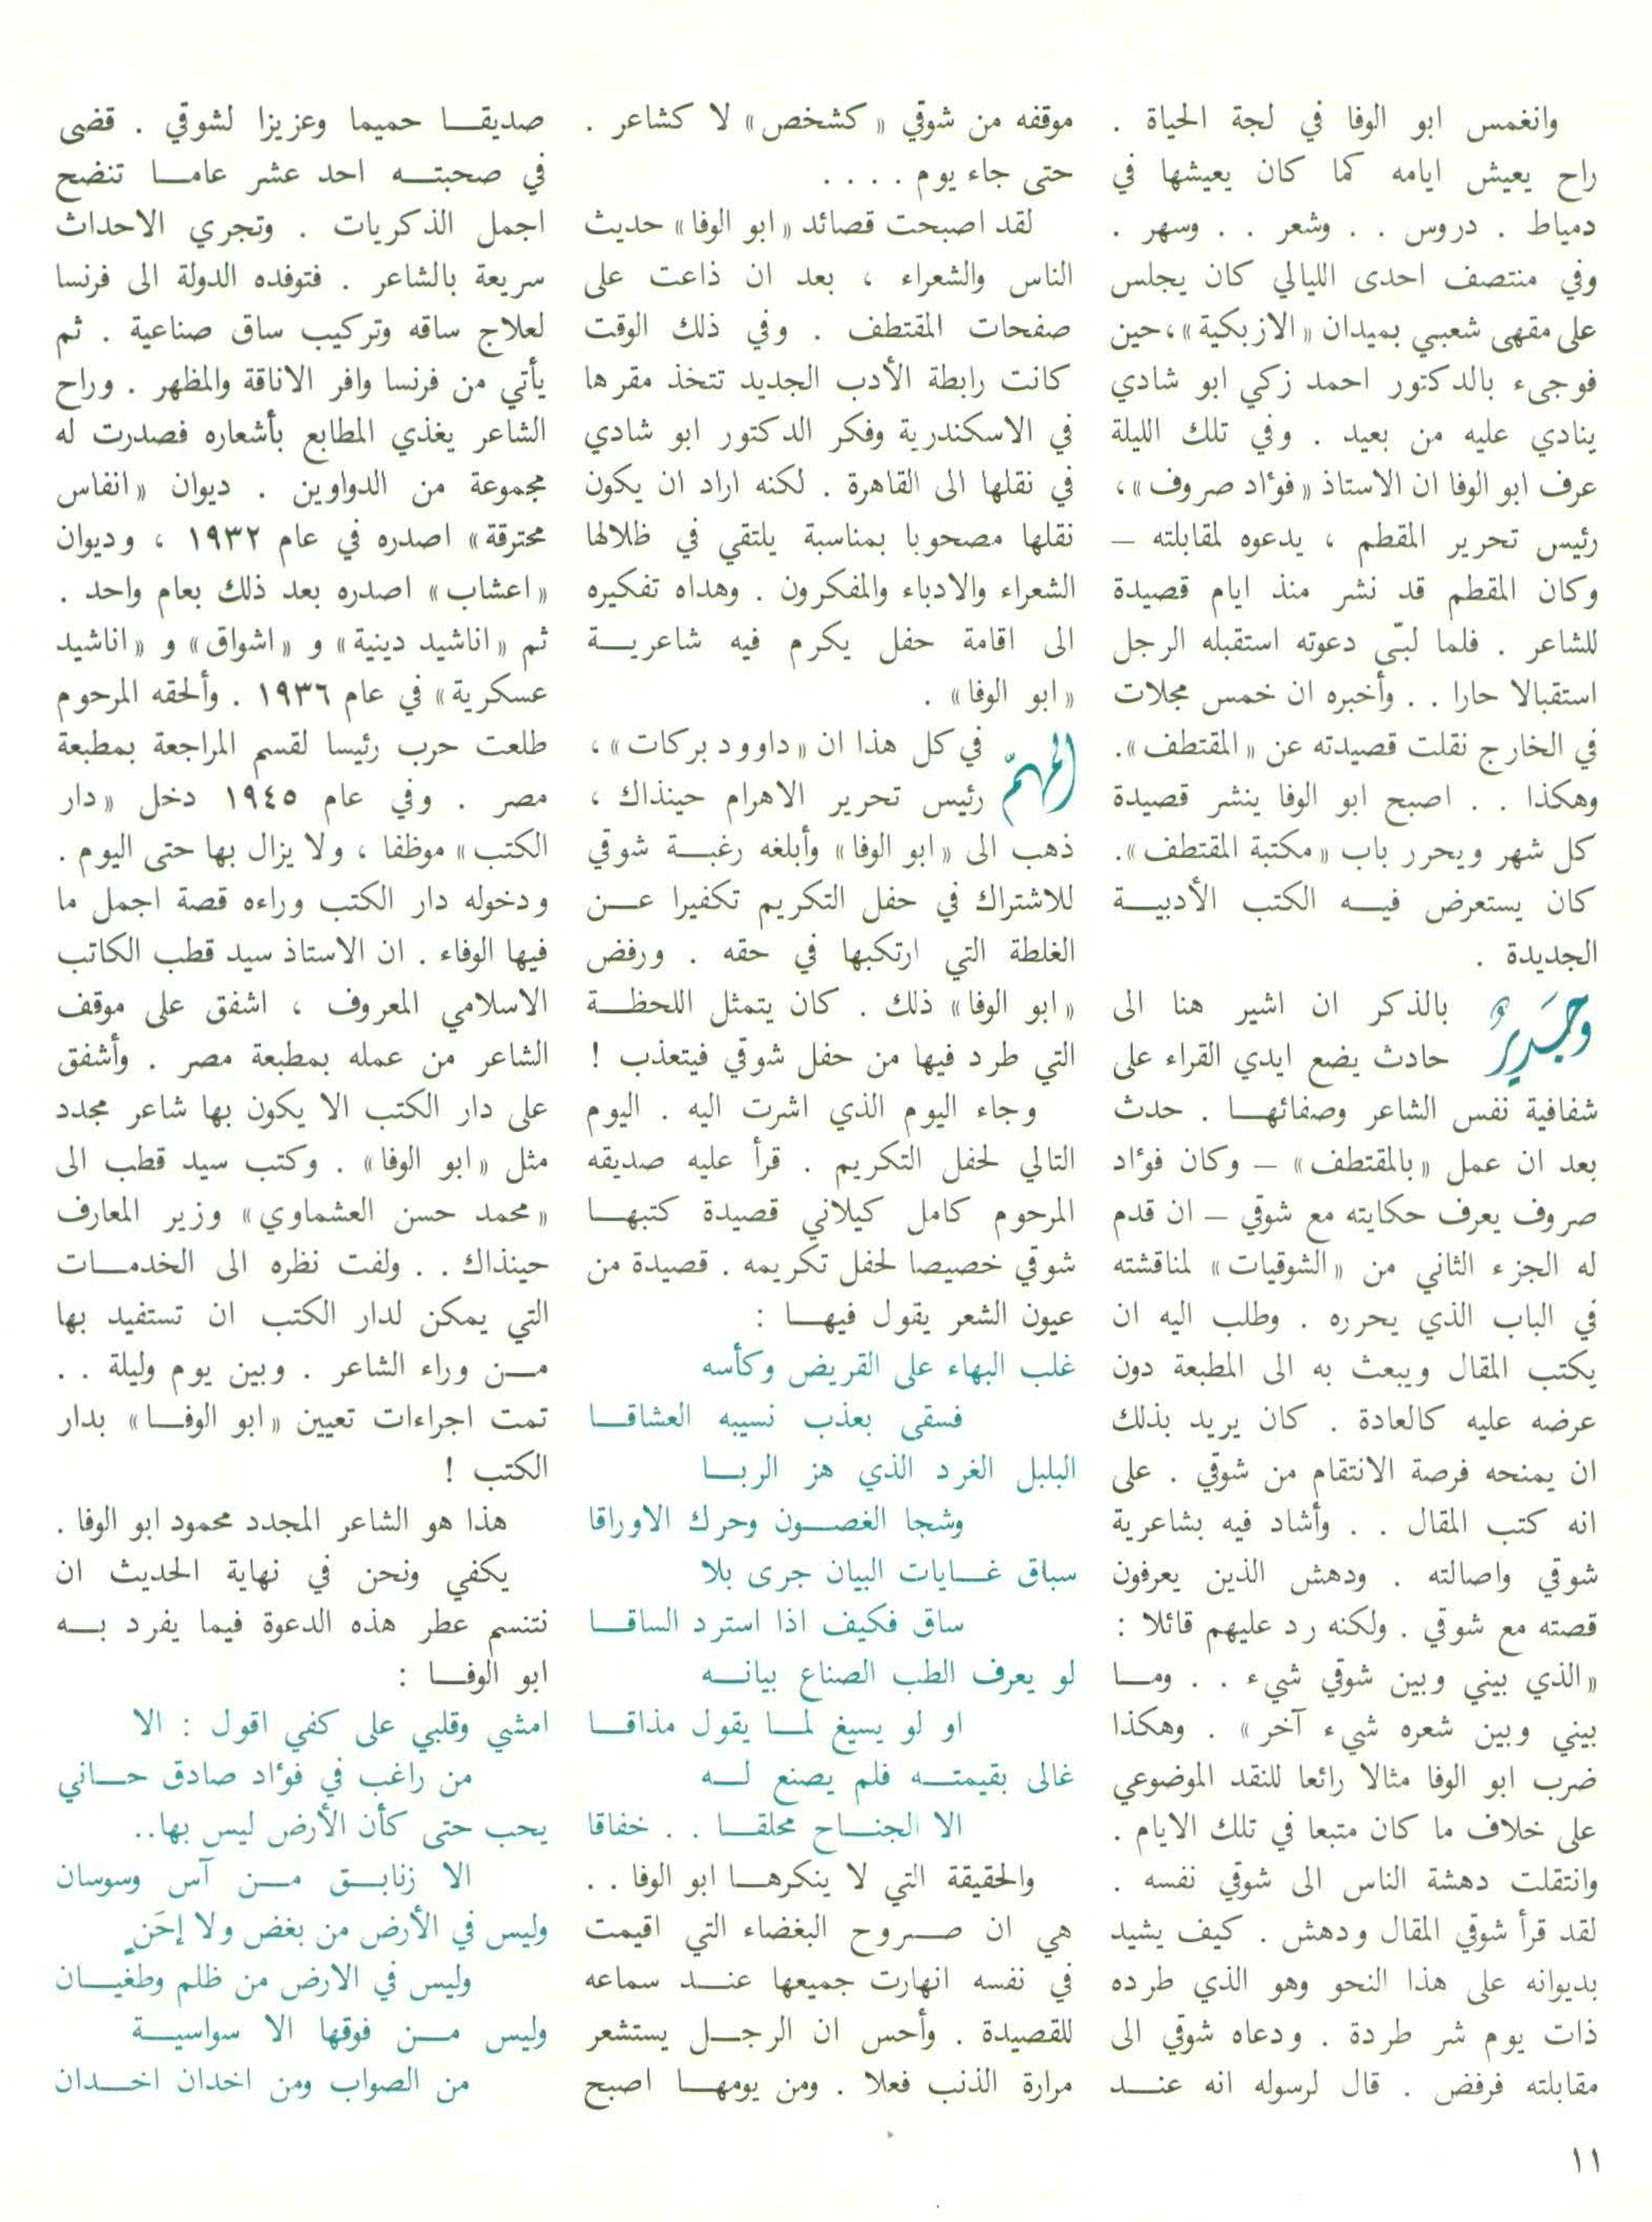 وانغمس ابو الوفا في لجة الحياة .
راح يعيش ايامه كما كان يعيشها في
دمياط . دروس . . وشعر . . وسهر .
وفي منتصف احدى الليالي كان يجلس
على مقهى شعبي بميدان «الازبكية»، حين
فوجىء بالدكتور احمد زكي ابو شادي
ينادي عليه من بعيد . وفي تلك الليلة
عرف ابو الوفا ان الاستاذ «فوٴاد صروف»،
رئيس تحرير المقطم ، يدعوه لمقابلته –
وكان المقطم قد نشر منذ ايام قصيدة
للشاعر . فلما لبّى دعوته استقبله الرجل
استقبالا حارا . . وأخبره ان خمس مجلات
في الخارج نقلت قصيدته عن «المقتطف».
وهكذا . . اصبح ابو الوفا ينشر قصيدة
كل شهر ويحرر باب «مكتبة المقتطف».
كان يستعرض فيه الكتب الأدبية
الجديدة .
وجَديرٌ بالذكر ان اشير هنا الى
حادث يضع ايدي القراء على
شفافية نفس الشاعر وصفائها . حدث
بعد ان عمل «بالمقتطف» – وكان فوٴاد
صروف يعرف حكايته مع شوقي – ان قدم
له الجزء الثاني من «الشوقيات» لمناقشته
في الباب الذي يحرره . وطلب اليه ان
يكتب المقال ويبعث به الى المطبعة دون
عرضه عليه كالعادة . كان يريد بذلك
ان يمنحه فرصة الانتقام من شوقي . على
انه كتب المقال . . وأشاد فيه بشاعرية
شوقي واصالته . ودهش الذين يعرفون
قصته مع شوقي . ولكنه رد عليهم قائلا :
«الذي بيني وبين شوقي شيء . . وما
بيني وبين شعره شيء آخر» . وهكذا
ضرب ابو الوفا مثالا رائعا للنقد الموضوعي
على خلاف ما كان متبعا في تلك الايام .
وانتقلت دهشة الناس الى شوقي نفسه .
لقد قرأ شوقي المقال ودهش . كيف يشيد
بديوانه على هذا النحو وهو الذي طرده
ذات يوم شر طردة . ودعاه شوقي الى
مقابلته فرفض . قال لرسوله انه عند
موقفه من شوقي «كشخص» لا كشاعر .
حتى جاء يوم . . . .
لقد اصبحت قصائد «ابو الوفا» حديث
الناس والشعراء ، بعد ان ذاعت على
صفحات المقتطف . وفي ذلك الوقت
كانت رابطة الأدب الجديد تتخذ مقرها
في الاسكندرية وفكر الدكتور ابو شادي
في نقلها الى القاهرة . لكنه اراد ان يكون
نقلها مصحوبا بمناسبة يلتقي في ظلالها
الشعراء والادباء والمفكرون . وهداه تفكيره
الى اقامة حفل يكرم فيه شاعرية
«ابو الوفا» .
المهمّ في كل هذا ان «داوود بركات»،
رئيس تحرير الاهرام حينذاك ،
ذهب الى «ابو الوفا» وأبلغه رغبة شوقي
للاشتراك في حفل التكريم تكفيرا عن
الغلطة التي ارتكبها في حقه . ورفض
«ابو الوفا» ذلك . كان يتمثل اللحظة
التي طرد فيها من حفل شوقي فيتعذب !
وجاء اليوم الذي اشرت اليه . اليوم
التالي لحفل التكريم . قرأ عليه صديقه
المرحوم كامل كيلاني قصيدة كتبها
شوقي خصيصا لحفل تكريمه . قصيدة من
عيون الشعر يقول فيها :
غلب البهاء على القريض وكأسه
فسقى بعذب نسيبه العشاقا
البلبل الغرد الذي هز الربا
وشجا الغصون وحرك الاوراقا
سباق غايات البيان جرى بلا
ساق فكيف اذا استرد الساقا
لو يعرف الطب الصناع بيانه
او لو يسيغ لما يقول مذاقا
غالى بقيمته فلم يصنع له
الا الجناح محلقا . . خفاقا
والحقيقة التي لا ينكرها ابو الوفا . .
هي ان صروح البغضاء التي اقيمت
في نفسه انهارت جميعها عند سماعه
للقصيدة . وأحس ان الرجل يستشعر
مرارة الذنب فعلا . ومن يومها اصبح
صديقا حميما وعزيزا لشوقي . قضى
في صحبته احد عشر عاما تنضح
اجمل الذكريات . وتجري الاحداث
سريعة بالشاعر . فتوفده الدولة الى فرنسا
لعلاج ساقه وتركيب ساق صناعية . ثم
يأتي من فرنسا وافر الاناقة والمظهر . وراح
الشاعر يغذي المطابع بأشعاره فصدرت له
مجموعة من الدواوين . ديوان «انفاس
محترقة» اصدره في عام ١٩٣٢ ، وديوان
«اعشاب» اصدره بعد ذلك بعام واحد .
ثم «اناشيد دينية» و «اشواق» و «اناشيد
عسكرية» في عام ١٩٣٦ . وألحقه المرحوم
طلعت حرب رئيسا لقسم المراجعة بمطبعة
مصر . وفي عام ١٩٤٥ دخل «دار
الكتب» موظفا ، ولا يزال بها حتى اليوم .
ودخوله دار الكتب وراءه قصة اجمل ما
فيها الوفاء . ان الاستاذ سيد قطب الكاتب
الاسلامي المعروف ، اشفق على موقف
الشاعر من عمله بمطبعة مصر . وأشفق
على دار الكتب الا يكون بها شاعر مجدد
مثل «ابو الوفا» . وكتب سيد قطب الى
«محمد حسن العشماوي» وزير المعارف
حينذاك . . ولفت نظره الى الخدمات
التي يمكن لدار الكتب ان تستفيد بها
من وراء الشاعر . وبين يوم وليلة . .
تمت اجراءات تعيين «ابو الوفا» بدار
الكتب !
هذا هو الشاعر المجدد محمود ابو الوفا .
يكفي ونحن في نهاية الحديث ان
نتنسم عطر هذه الدعوة فيما يفرد به
ابو الوفا :
امشي وقلبي على كفي اقول : الا
من راغب في فوٴاد صادق حاني
يحب حتى كأن الأرض ليس بها..
الا زنابق من آس وسوسان
وليس في الأرض من بغض ولا إحَنٍ
وليس في الارض من ظلم وطغيان
وليس من فوقها الا سواسية
من الصواب ومن اخدان اخدان
١١